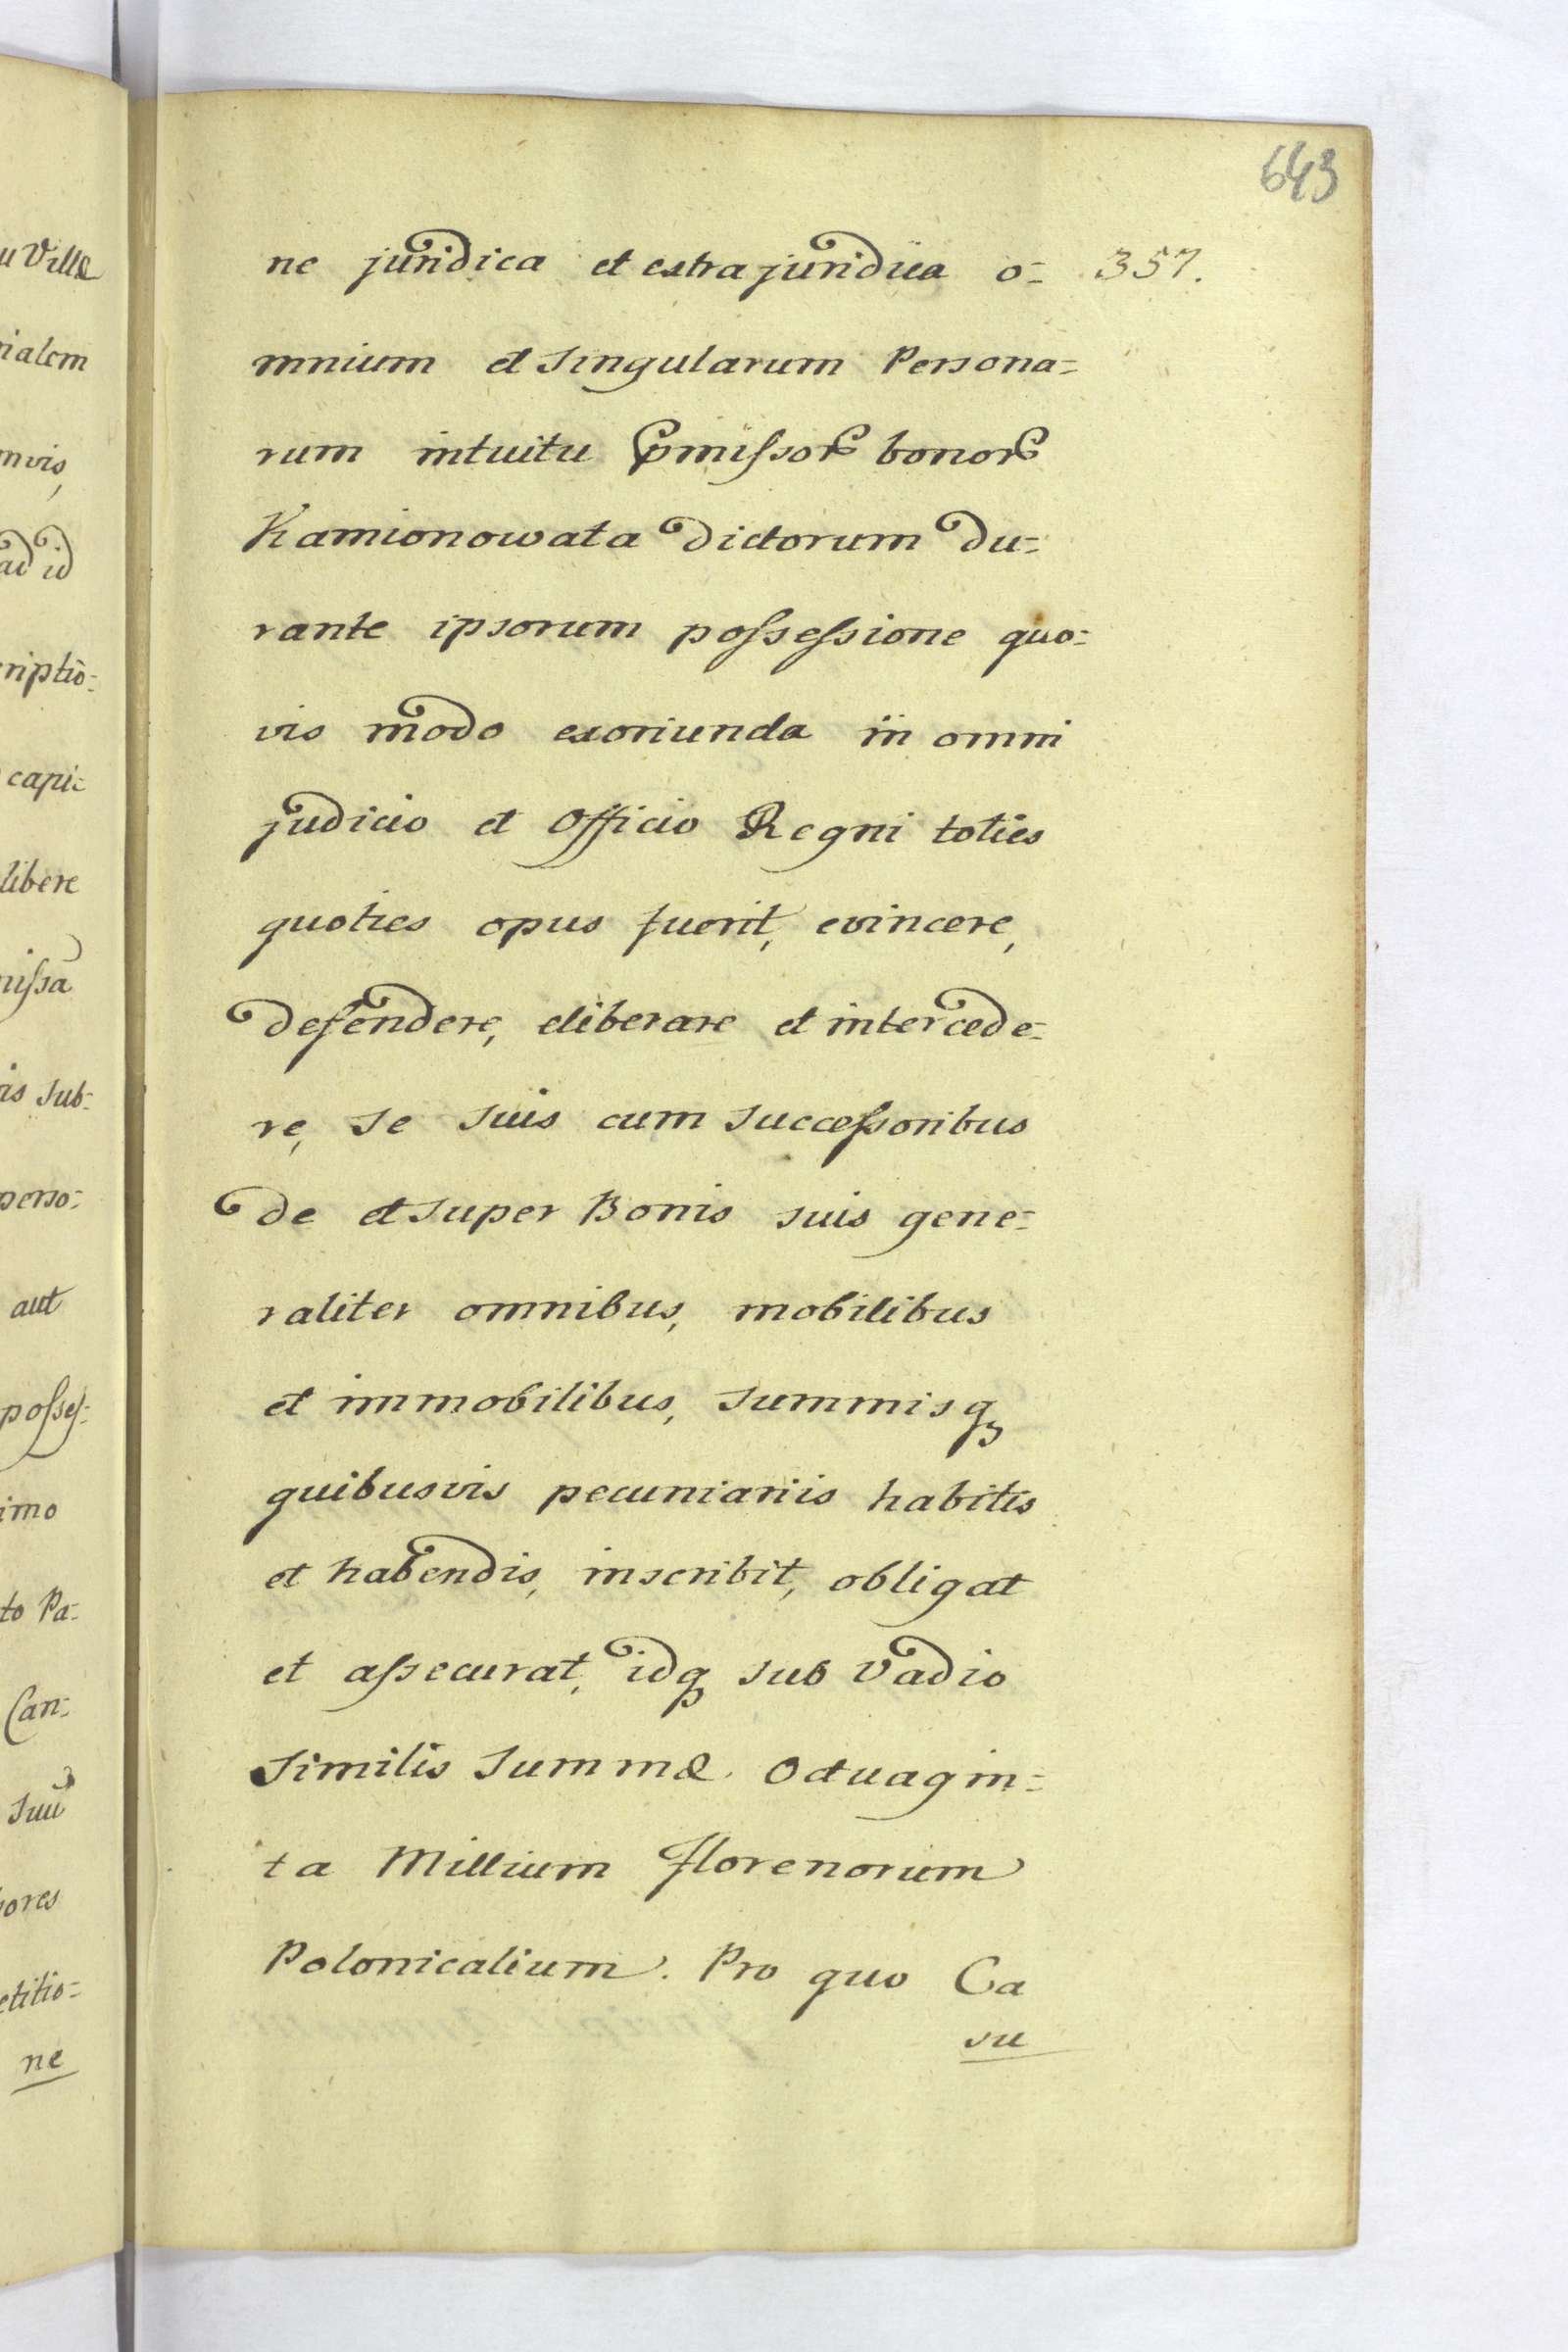 643
ne juridica et extrajuridica o= 357.
mnium et singularum Persona=
rum intuitu pmissor bonor
Kamionowata dictorum du=
rante ipsorum possessione quo=
vis modo exoriunda in omni
judicio et Officio Regni toties
quoties opus fuerit, evincere,
defendere, eliberare et intercede=
re, se suis cum successoribus
de et super Bonis suis gene=
raliter omnibus, mobilibus
et immobilibus, summisqꝫ
quibusvis pecuniariis habitis
et habendis, inscribit, obligat
et assecurat, idqꝫ sub vadio
similis summæ Octuagin=
ta Millium florenorum
Polonicalium. Pro quo Ca
su
u Villæ
nialem
mvis,
ad id
criptio=
capi=
libere
nissa
is sub=
perso=
aut
posses=
imo
to Pa=
Can=
suu
ores
etitio=
ne